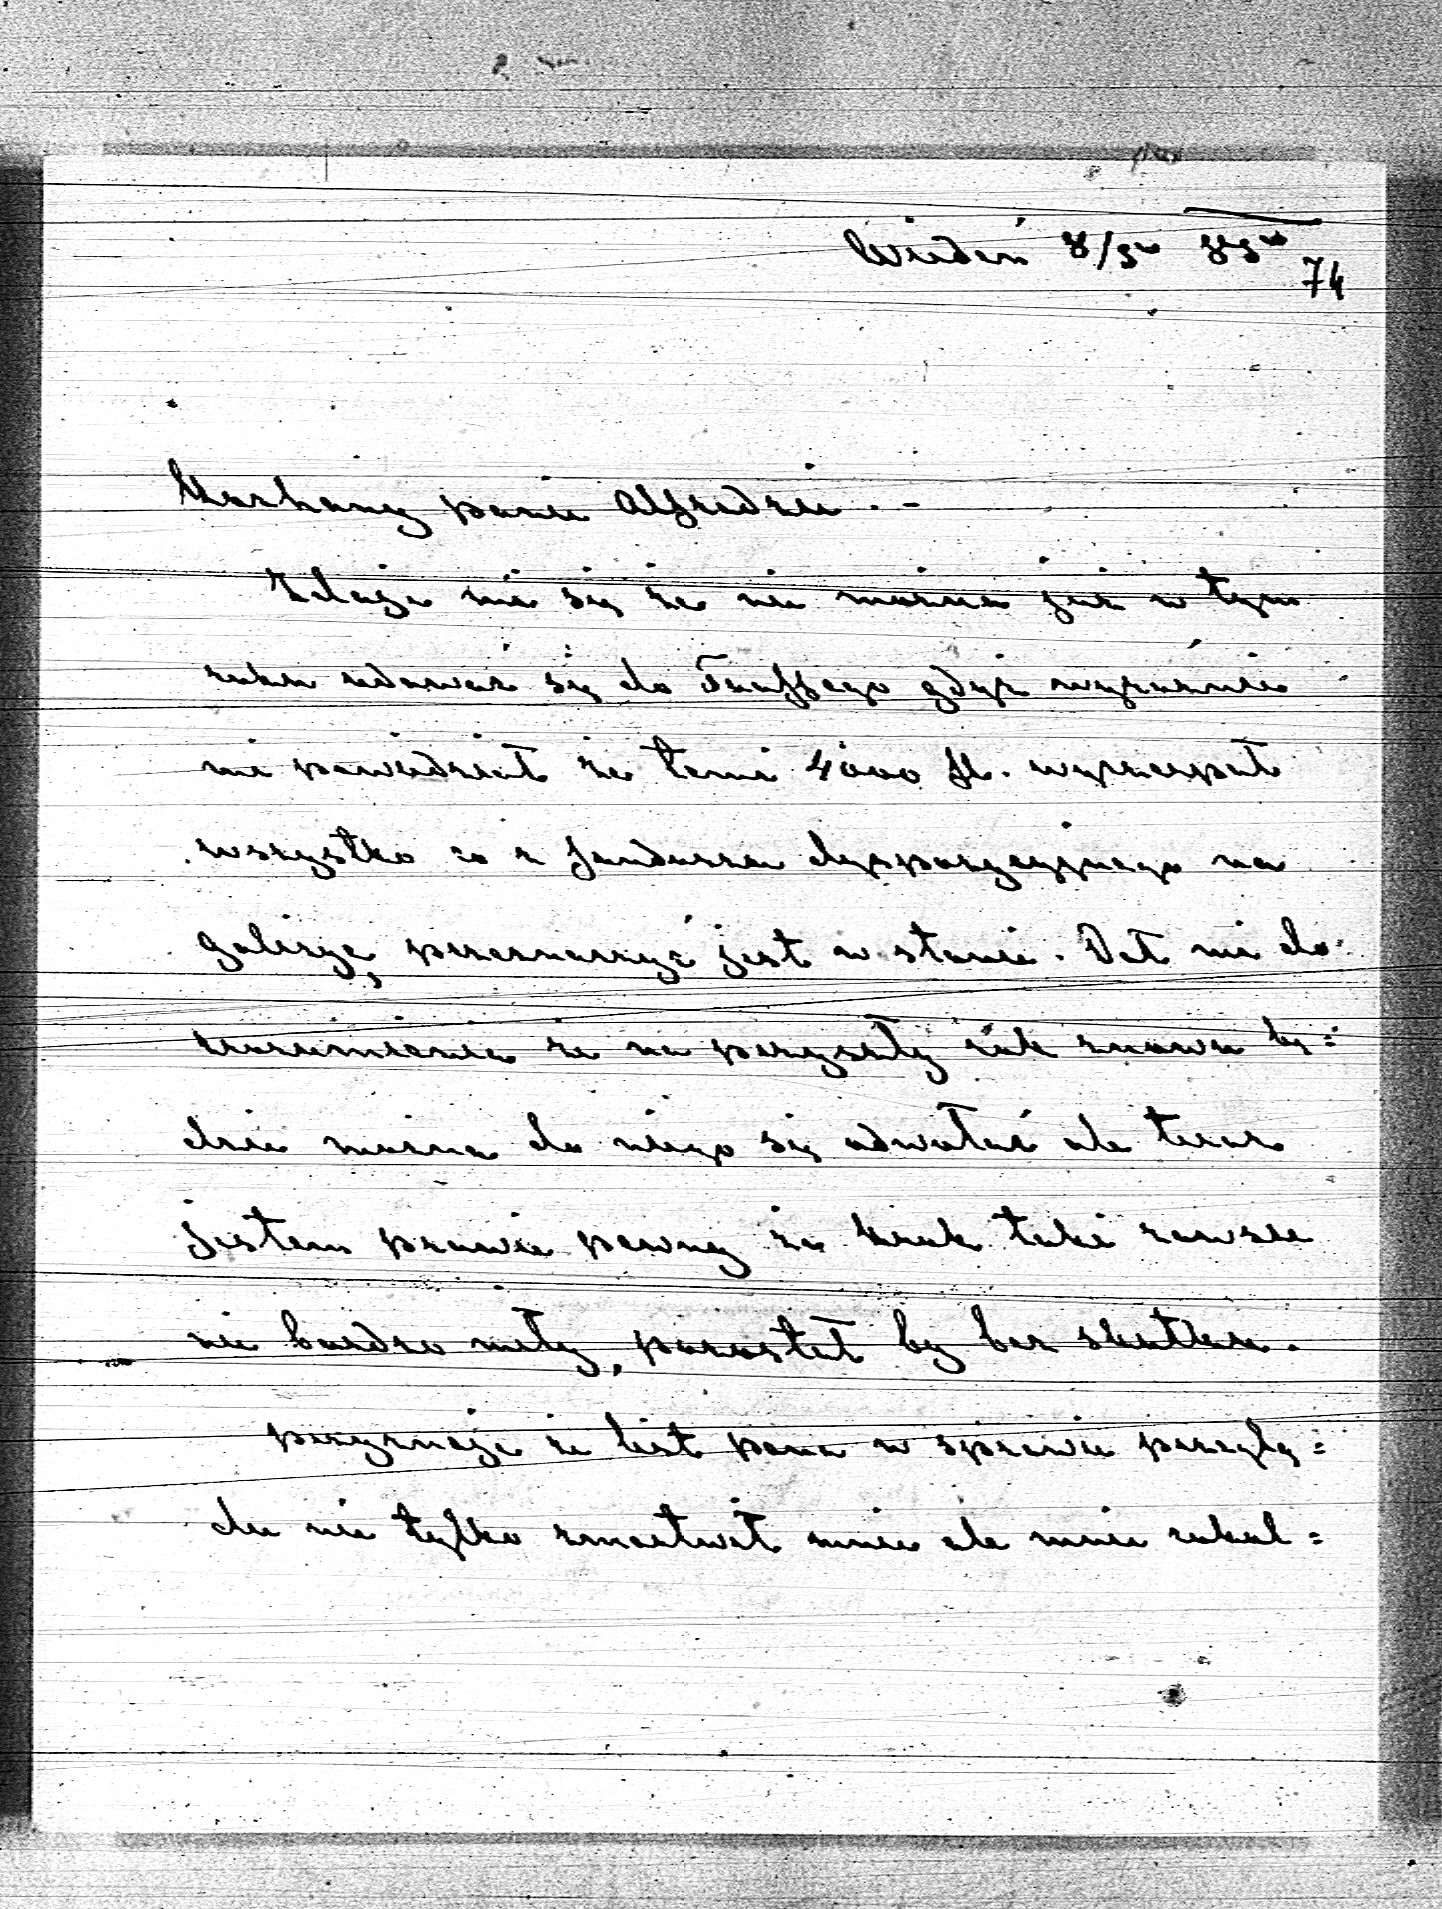 Wiedeń 8/3 83
74
Kochany panie Alfredzie. -
Zdaje mi się że nie można już w tym
roku udawać się do Taaffego gdyż wyraźnie
mi powiedział że temi 4000 fl. wyczerpał
wszystko co z funduszu dyspozycyjnego na
galicyę, przeznaczyć jest w stanie. Dał mi do
zrozumienia że na przyszły rok znowu bę=
dzie można do niego się odwołać ale teraz
jestem prawie pewny że krok taki zawsze
nie bardzo miły, pozostał by bez skutku.
przyznaję że list pana w sprawie przeglą=
du nie tylko zmartwił mnie ale mnie zabol=